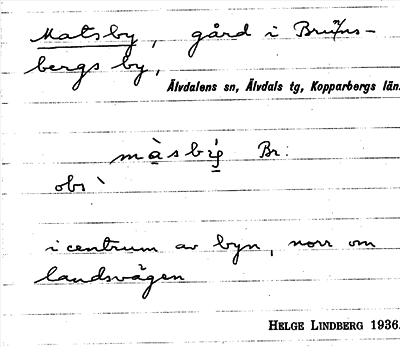 Matsby, gård i Brunns-
bergs by,
Älvdalens sn, Älvdals tg, Kopparbergs län.
Br.
obs
i centrum av byn, norr om
landsvägen
HELGE LINDBERG 1936.